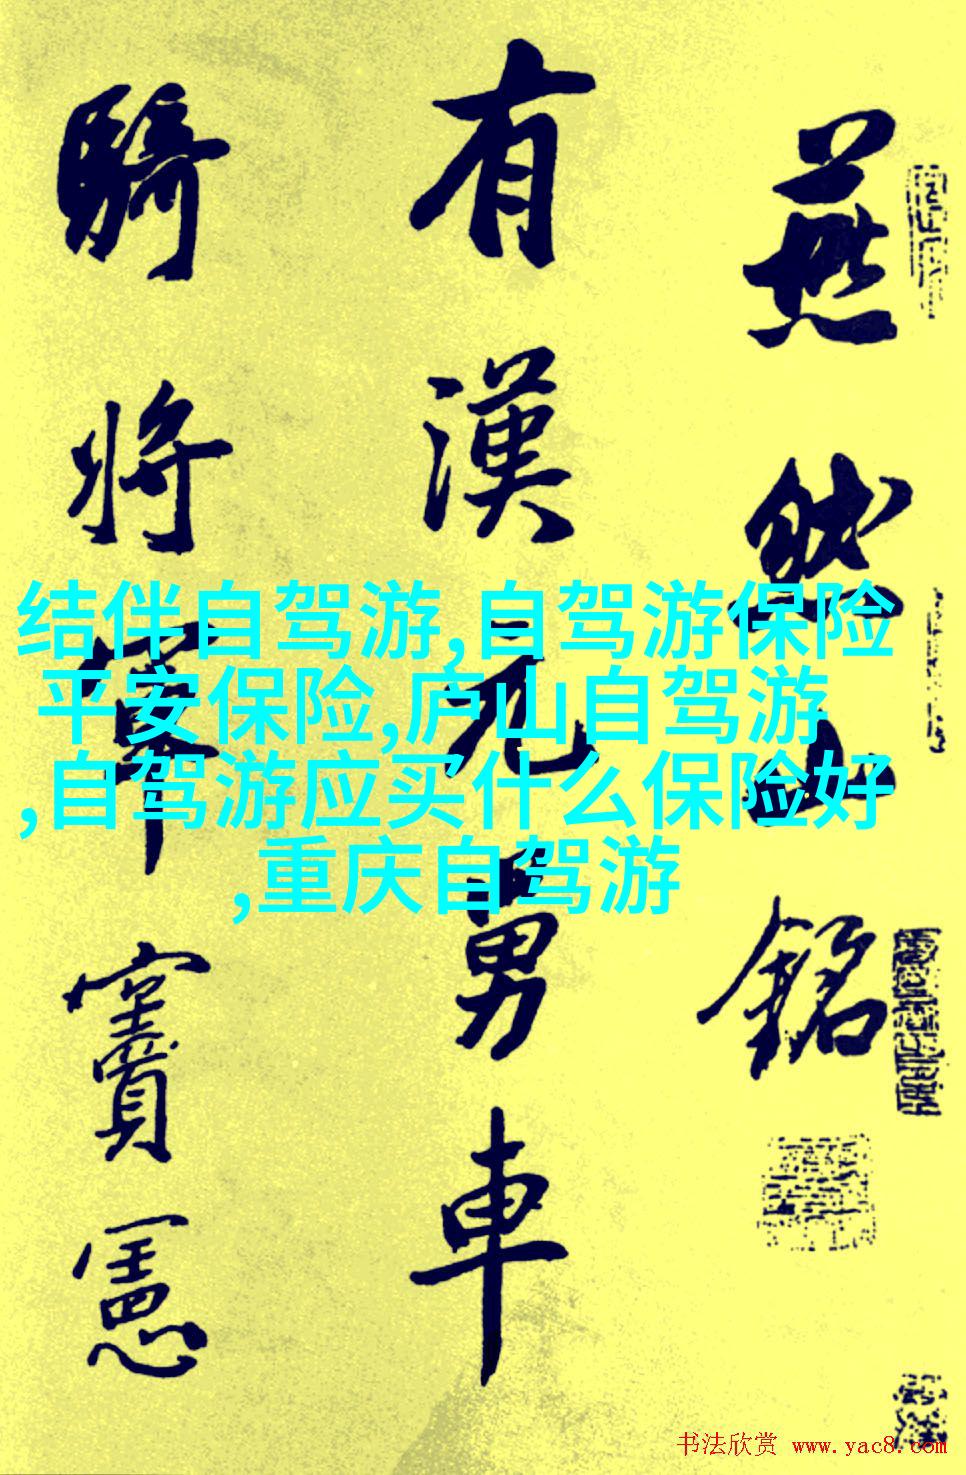 燕然山銘
有漢元舅車
騎將軍竇憲
结伴自驾游,自驾游保险
平安保险,庐山自驾游
,自驾游应买什么保险好
,重庆自驾游
书法欣赏 www.yac8.com